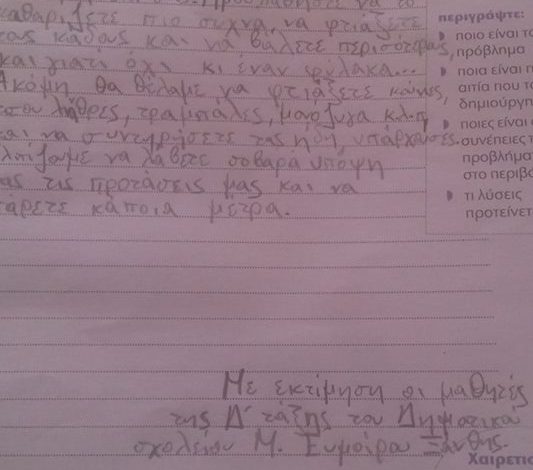 καθαρίζετε πιο συχνά, να φτιάξετε
τους κάδους και να βάλετε περισσότερους,
και γιατί όχι κι έναν φύλακα...
Ακόμη θα θέλαμε να φτιάξετε καινές,
τσουλήθρες, τραμπάλες, μονόζυγα κ.λ.π
και να συντηρήσετε τις ήδη υπάρχουσες.
Ελπίζουμε να λάβετε σοβαρά υπόψη
σας τις προτάσεις μας και να
πάρετε κάποια μέτρα.
Με εκτίμηση οι μαθητές
της Δ' τάξης του Δημοτικού
σχολείου Μ. Ευμοίρου Ξάνθης.
περιγράψτε:
ποιο είναι το
πρόβλημα
ποια είναι η
αιτία που το
δημιούργη
ποιες είναι ο
συνέπειες τ
προβλήμα
στο περιβά
τι λύσεις
προτείνετ
Χαιρετισ